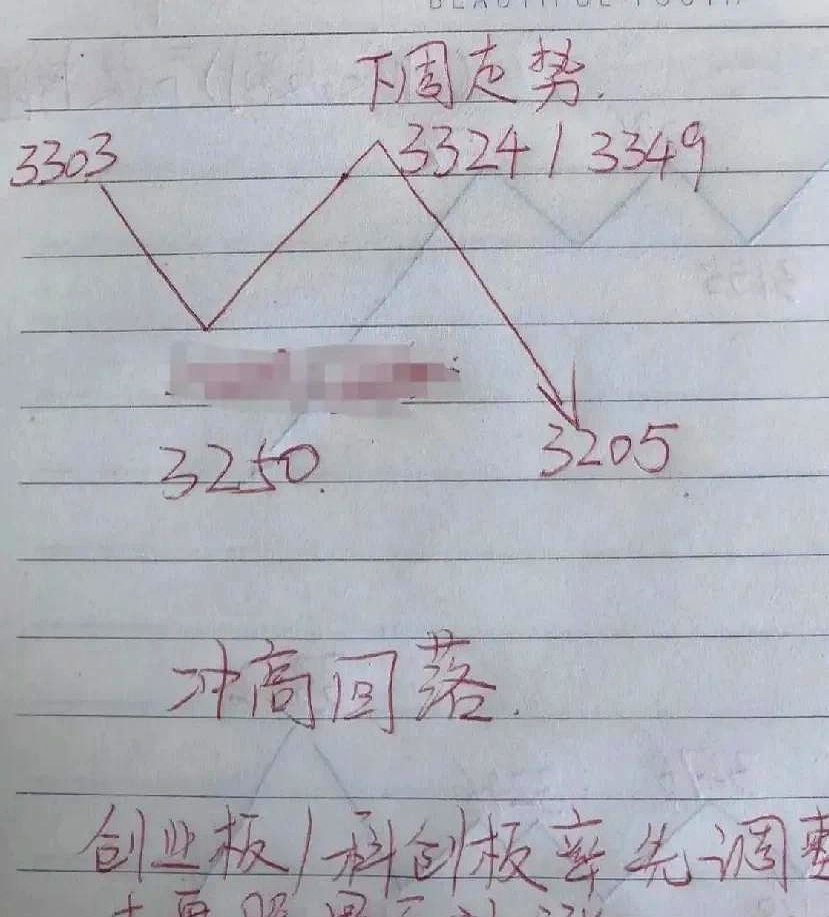 下周走势.
3303
3324 / 3349
3250.
3205
冲高回落.
创业板/科创板率先调整